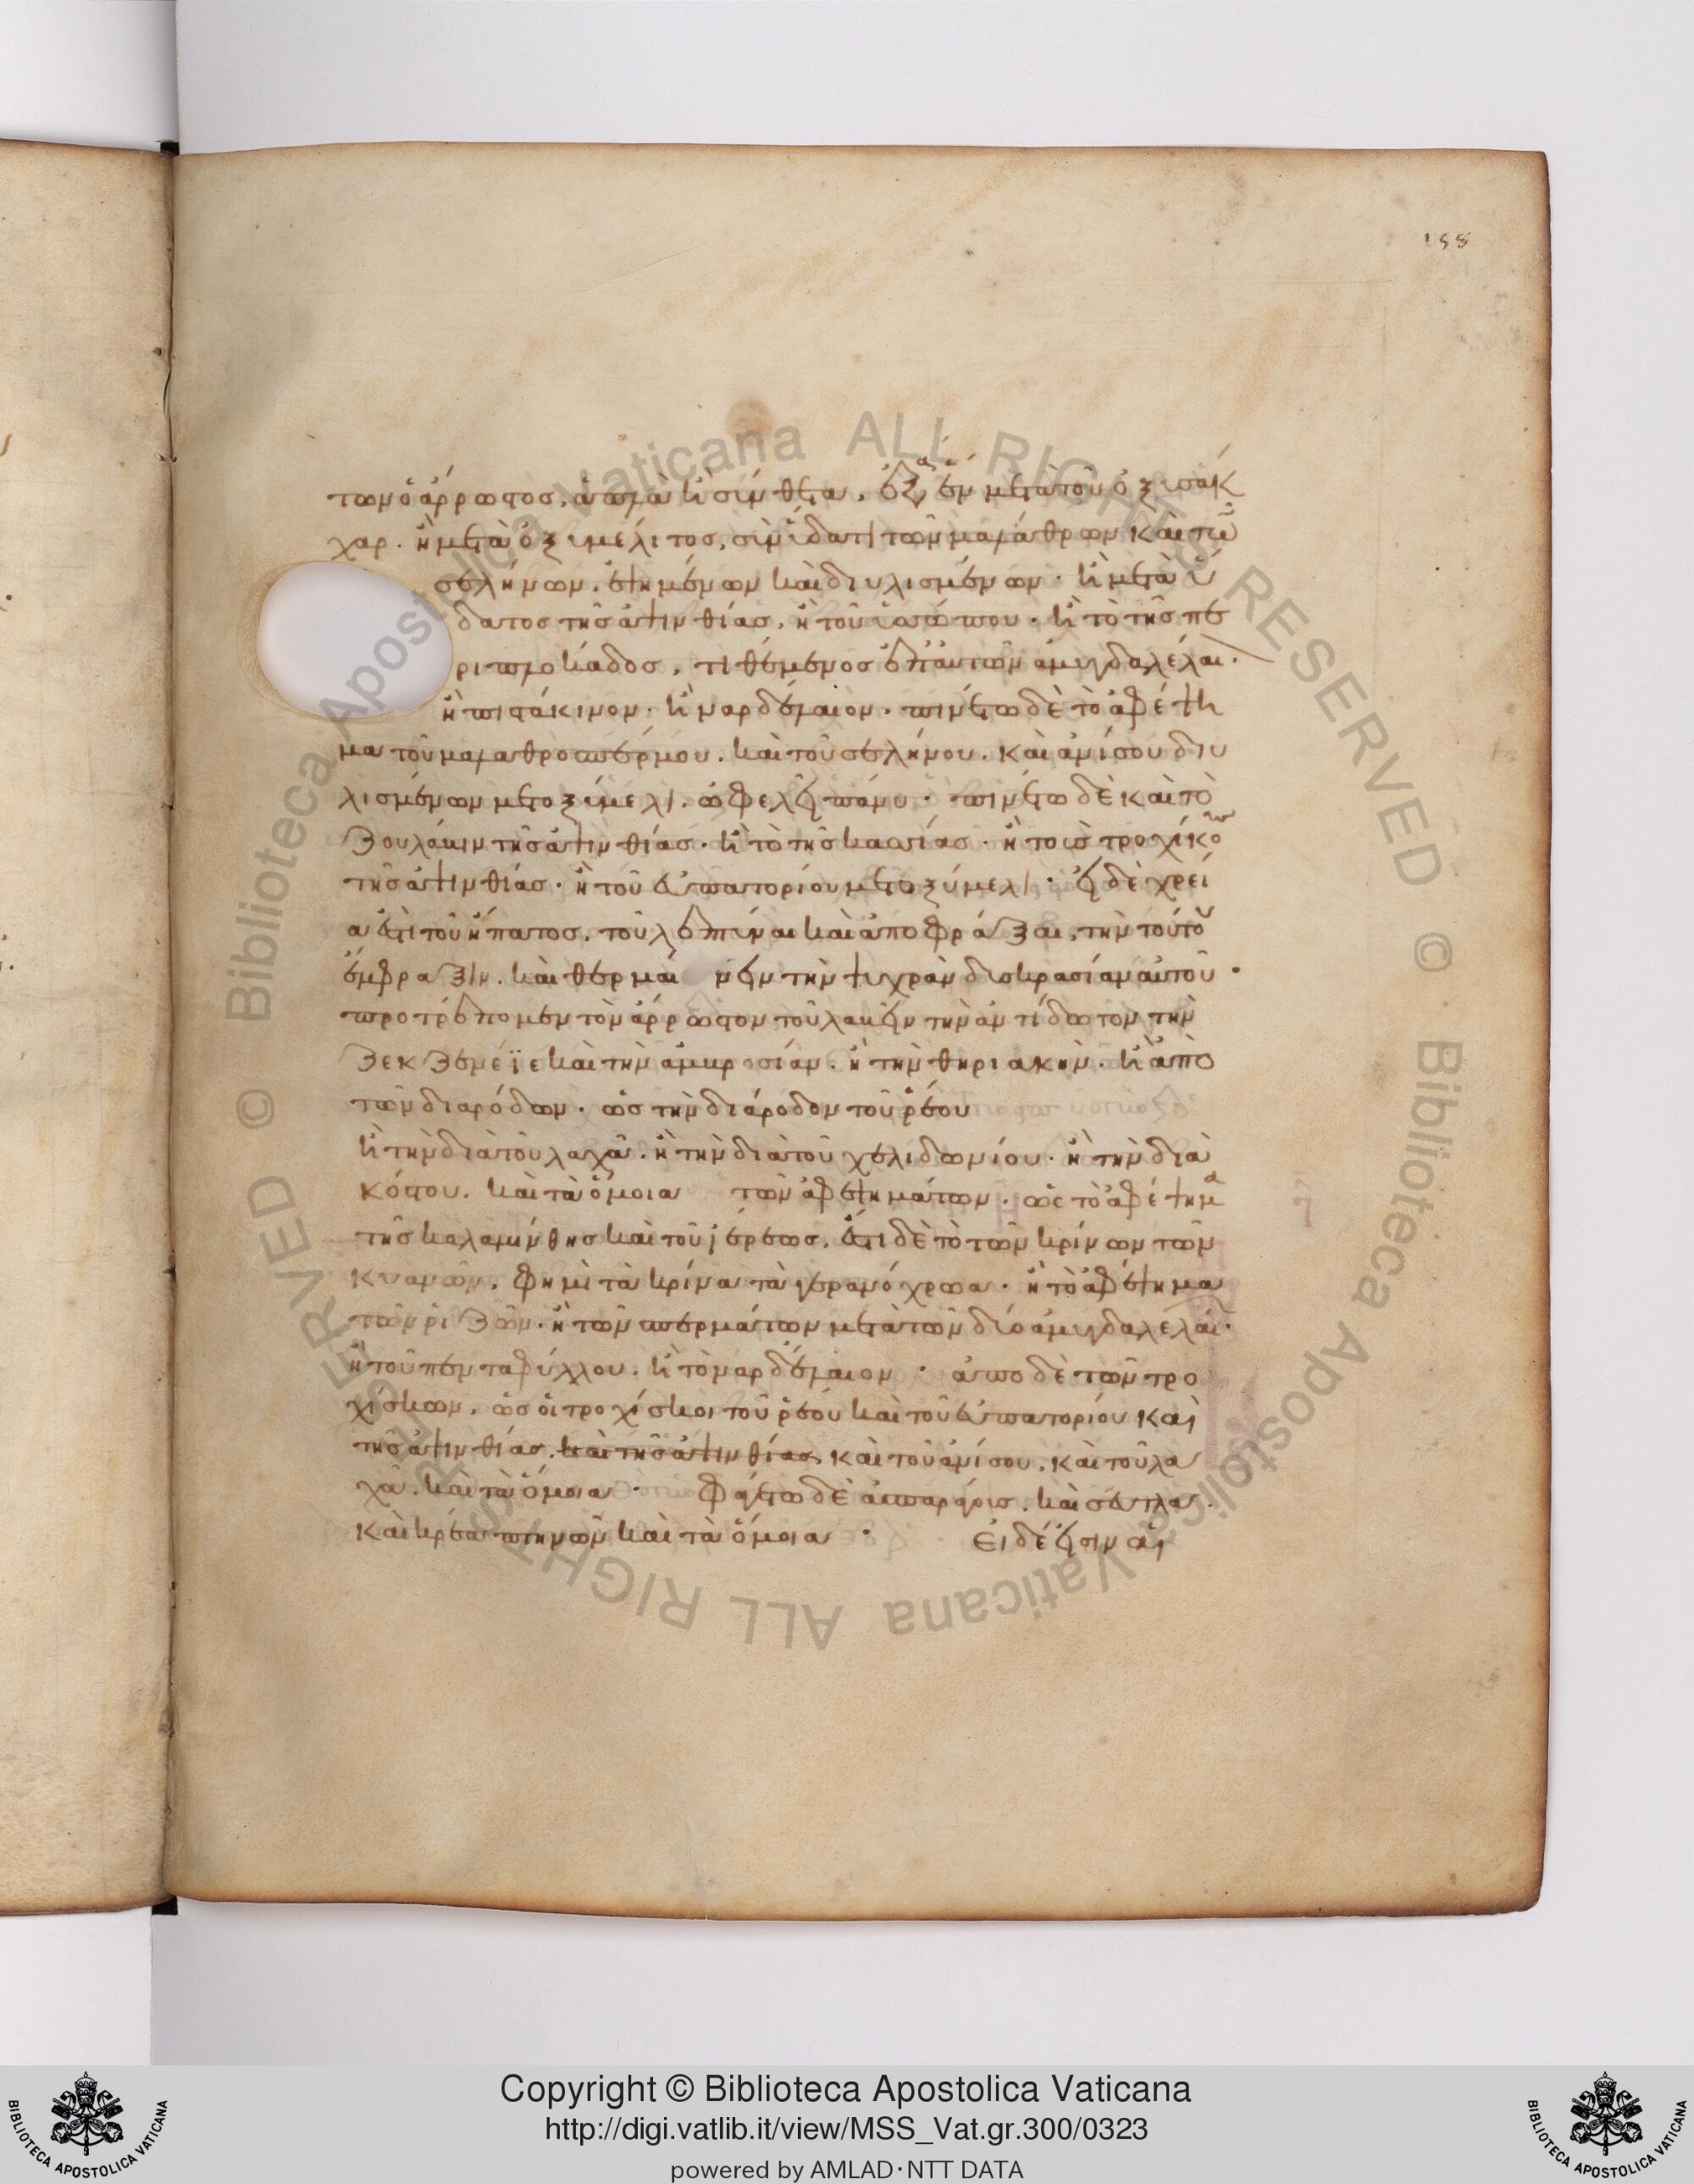 158
των ὁ ἄρρωστος, ἁπλὰ ἢ σύνθετα. μετὰ τοῦ ὀξυσάκ
χαρ. ἢ μετὰ ὀξυμέλιτος, σὺν ὕδατι τῶν μαράθρων καὶ τῶν
σελήνων. ἑψημένων καὶ διυλισμένων. ἢ μετὰ ὕ
δατος τῆς ἀψινθίας, ἢ τοῦ ὑσσώπου. ἢ τὸ τῆς πε
ριπλοκάδος, τιθέμενος ἐπάν τῶν ἀμυγδαλέλαι.
ἢ πιστάκινον. ἢ ναρδέλαιον. πινέτω δὲ τὸ ἀφέψη
μα τοῦ μαραθροσπέρμου. καὶ τοῦ σελήνου. καὶ ἀνίσου διυ
λισμένων μετ οξύμελι. ὠφελεῖ πάνυ. πινέτω δὲ καὶ τὸ
ζουλάπιν τῆς ἀψινθίας. ἢ τὸ τῆς κασίας. ἢ τοὺς τροχίσκους
τῆς ἀψινθίας. ἢ τοῦ εὐπατορίου μετ οξύμελι. εἰ δὲ χρεί
α ἐστὶ τοῦ ἥπατος. τοῦ λεπύναι καὶ ἀποφράξαι, τὴν τούτου
ἔμφραξιν. καὶ θερμαί νειν τὴν ψυχρὰν δυσκρασίαν αὐτοῦ.
προτρέπομεν τὸν ἄρρωστον τοῦ λαβεῖν τὴν ἀντίδοτον τὴν
καὶ τὴν ἀμβροσίαν. ἢ τὴν θηριακὴν. ἢ ἀπὸ
τῶν διαρόδων. ὡς τὴν διάροδον τοῦ ῥέου
ἢ τὴν διὰ τοῦ λαχᾶ. ἢ τὴν διὰ τοῦ χελιδωνίου. ἢ τὴν διὰ
κόστου. καὶ τὰ ὅμοια τῶν ἀφεψημάτων. ὡς τὸ ἀφέψημα
τῆς καλαμίνθης καὶ τοῦ ἴρεως. ἔτι δὲ τὸ τῶν κρίνων τῶν
κυανῶν. φημὶ τὰ κρίνα τὰ γερανόχροα. ἢ τὸ ἀφέψημα
τῶν ῥιζῶν. ἢ τῶν σπερμάτων μετὰ τῶν δύο ἀμυγδαλελαί.
ἢ τοῦ πενταφύλλου. ἢ τὸ ναρδέλαιον. ἀπο δὲ τῶν τρο
χίσκων. ὡς οἱ τροχίσκοι τοῦ ῥέου καὶ τοῦ εὐπατορίου καὶ
τῆς ἀψινθίας. καὶ τῆς ἀψινθίας, καὶ τοῦ ἀνίσου. καὶ τοῦ λα
χᾶ. καὶ τὰ ὅμοια. φαγέτω δὲ ἀσπαράγοις. καὶ σεῦτλα.
καὶ κρέα πτηνῶν καὶ τὰ ὅμοια. Εἰ δέ εἰσιν αἱ
Copyright © Biblioteca Apostolica Vaticana
http://digi.vatlib.it/view/MSS_Vat.gr.300/0323
powered by AMLAD·NTT DATA